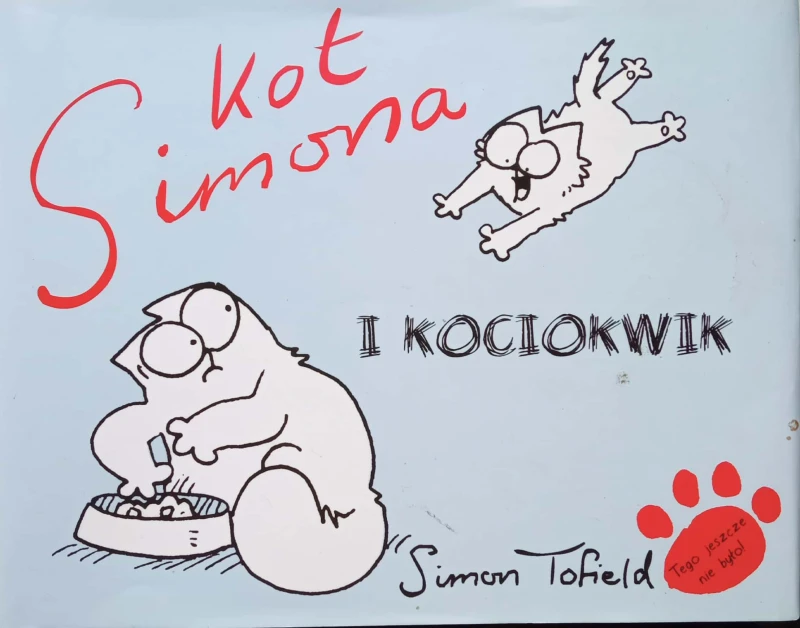 Kot
Simona
I KOCIOKWIK
Simon Tofield
Tego jeszcze
nie było!